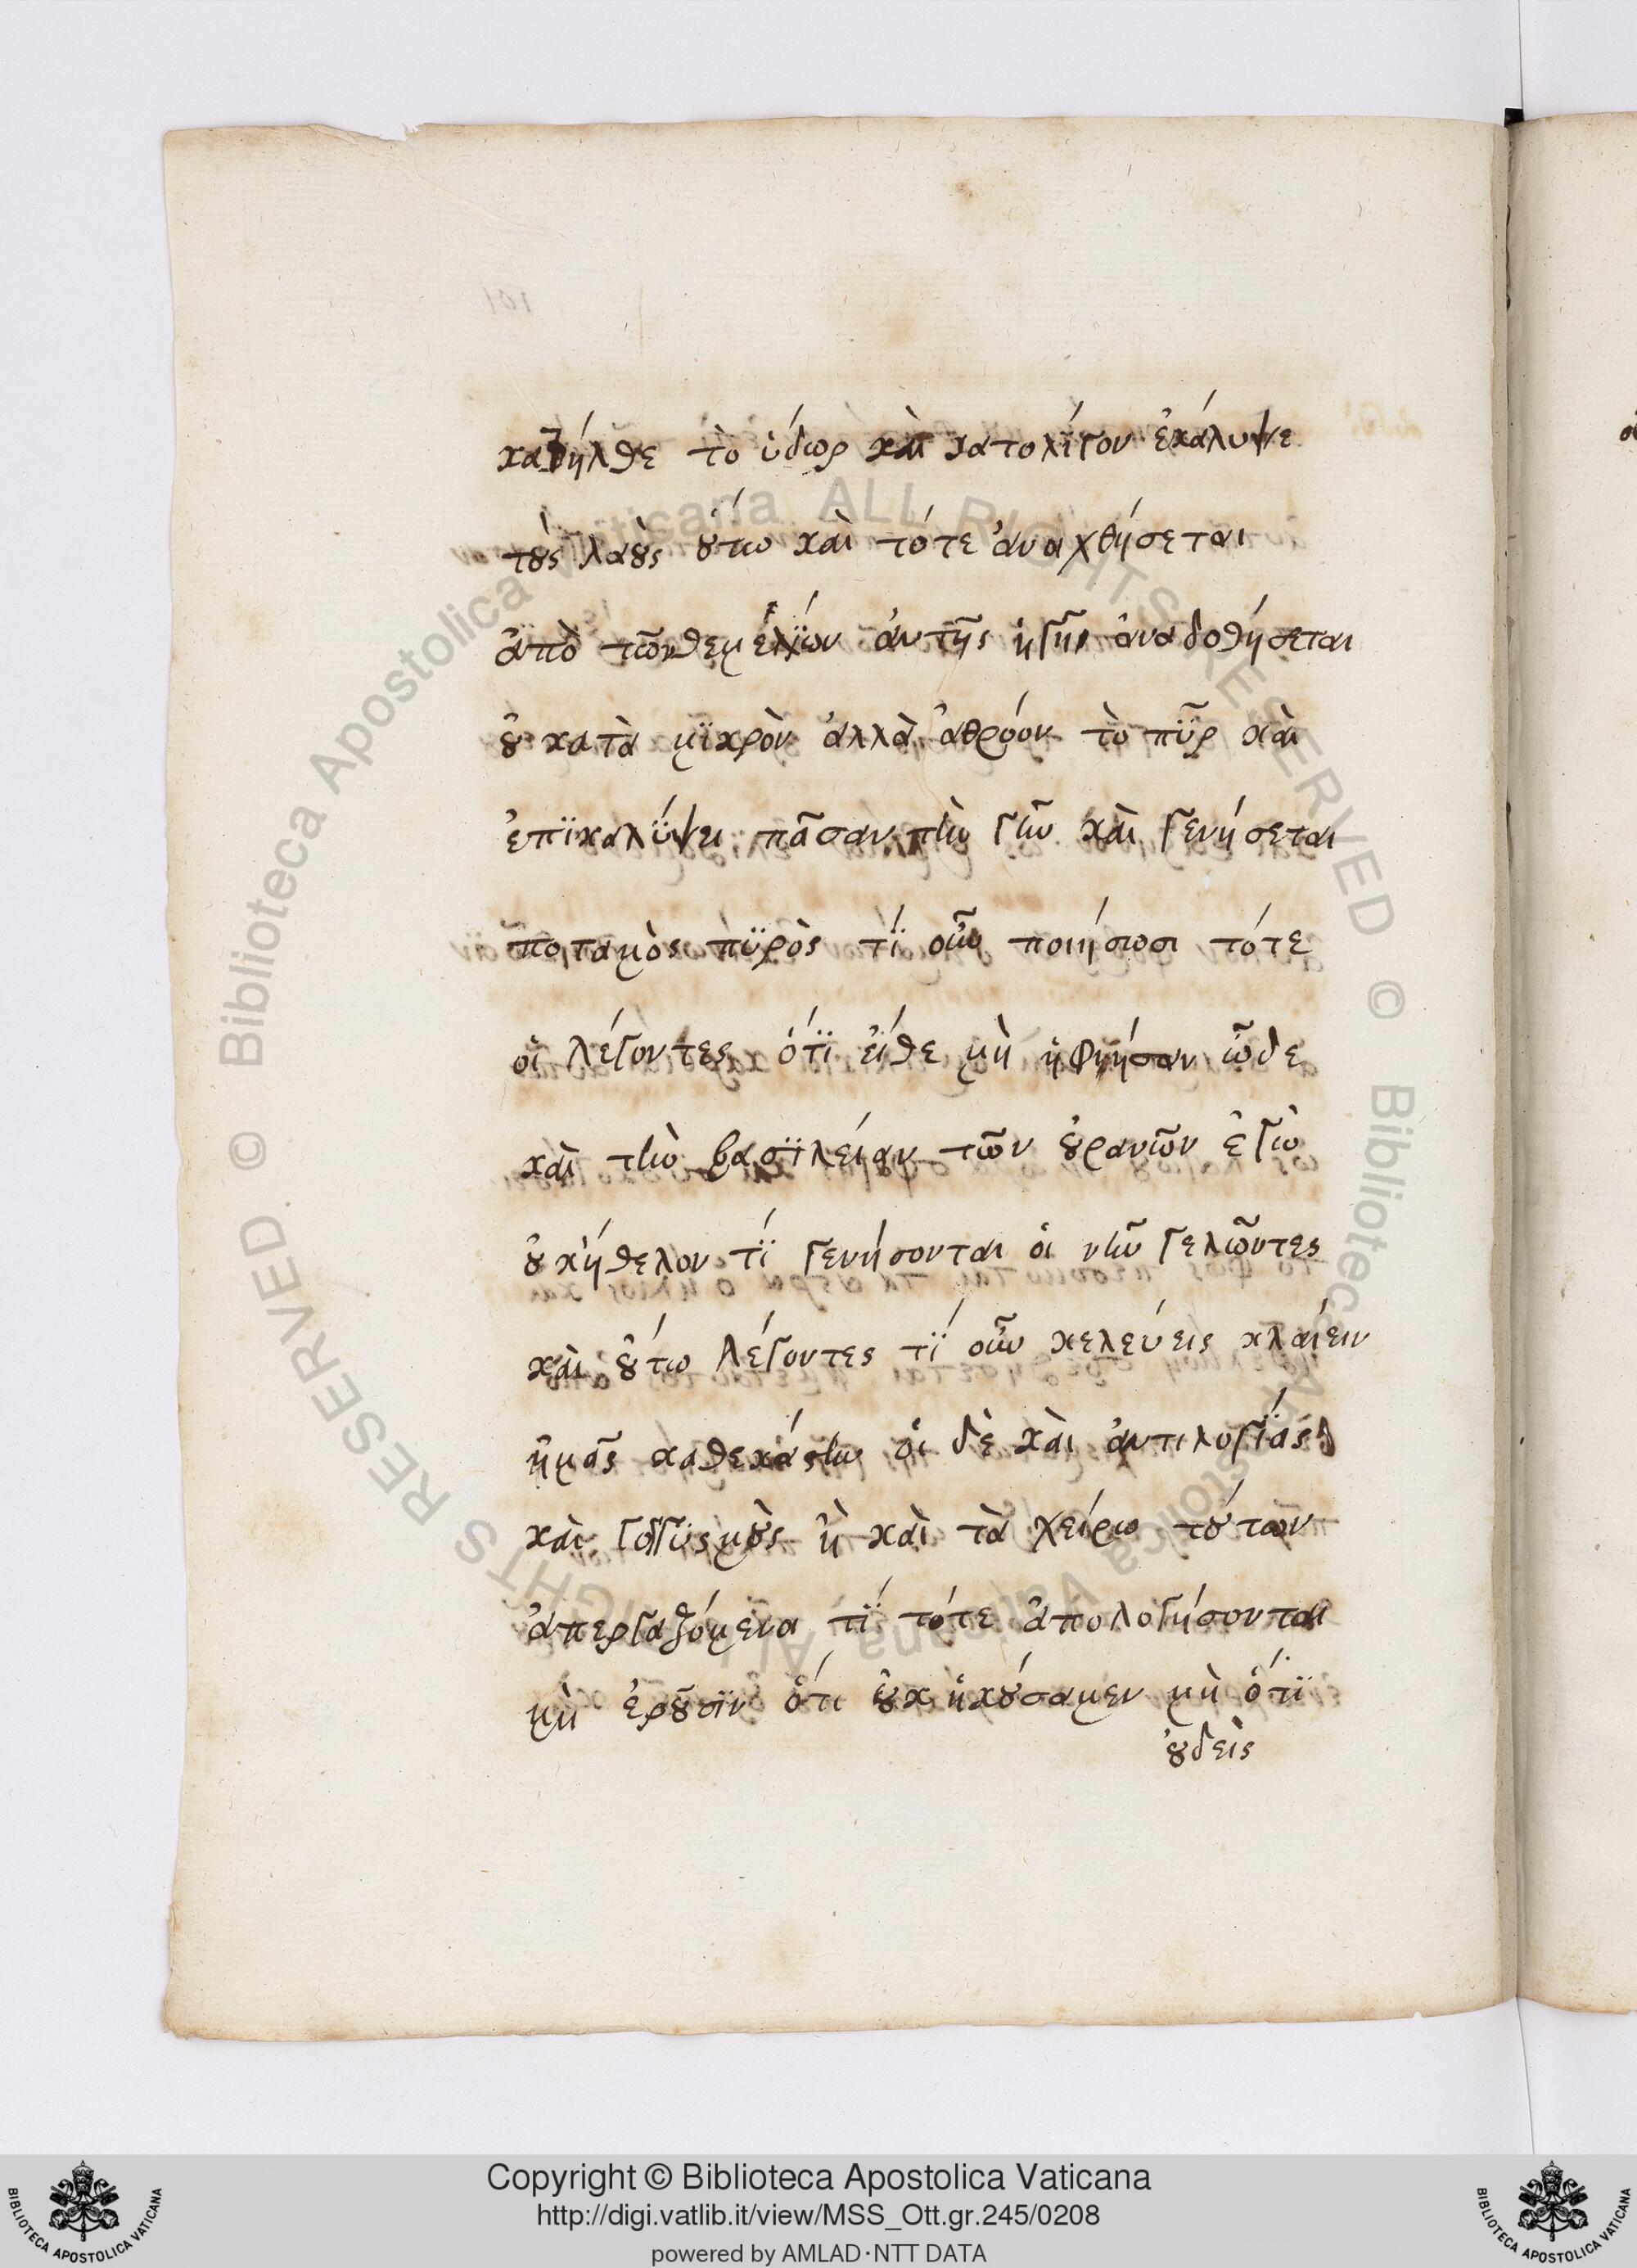 κατῆλθε τὸ ὑδωρ καὶ κατολίγον ἐκάλυψε
τȣ̀ς λαȣ̀ς ȣ́τω καὶ τότε ἀναχθήσεται
ἀπὸ τῶν θεμελΐων ἀυτῆς ἡ γῆ ἀναδοθήσεται
ȣ̓ κατὰ μϊκρὸν ἀλλὰ ἀθρόον τὸ πῦρ καὶ
ἐπϊκαλΰψει πᾶσαν τὴν γῆν καὶ γενήσεται
ποταμὸς πϋρὸς τΐ οὖν ποιήσωσι τότε
οἱ λέγοντες ὅτϊ ἔιθε μὴ ἠφιήσαν ὧδε
καὶ τὴν βασϊλείαν τῶν ȣ̓ρανῶν ἐγὼ
ȣ̓κ ἤθελον τΐ γενήσονται ὁι νῦν γελῶντες
καὶ ȣ̔́τω λέγοντες τΐ οὖν κελεύεις κλαίειν
ἡμᾶς καθεκάστην ὁι δὲ καὶ ἀντιλογΐας
καὶ γογγϋσμȣ̀ς ἢ καὶ τὰ χείρω τȣ́των
ἀπεργαζόμενα τΐ τότε ἀπολογήσονται
μὴ ἐρȣ͂σϊν ὅτι ȣ̓κ ἠκȣ́σαμεν μὴ ὅτϊ
ȣ̓δεὶς
Copyright © Biblioteca Apostolica Vaticana
http://digi.vatlib.it/view/MSS_Ott.gr.245/0208
powered by AMLAD·NTT DATA
BIBLIOTECA APOSTOLICA VATICANA
BIBLIOTECA APOSTOLICA VATICANA